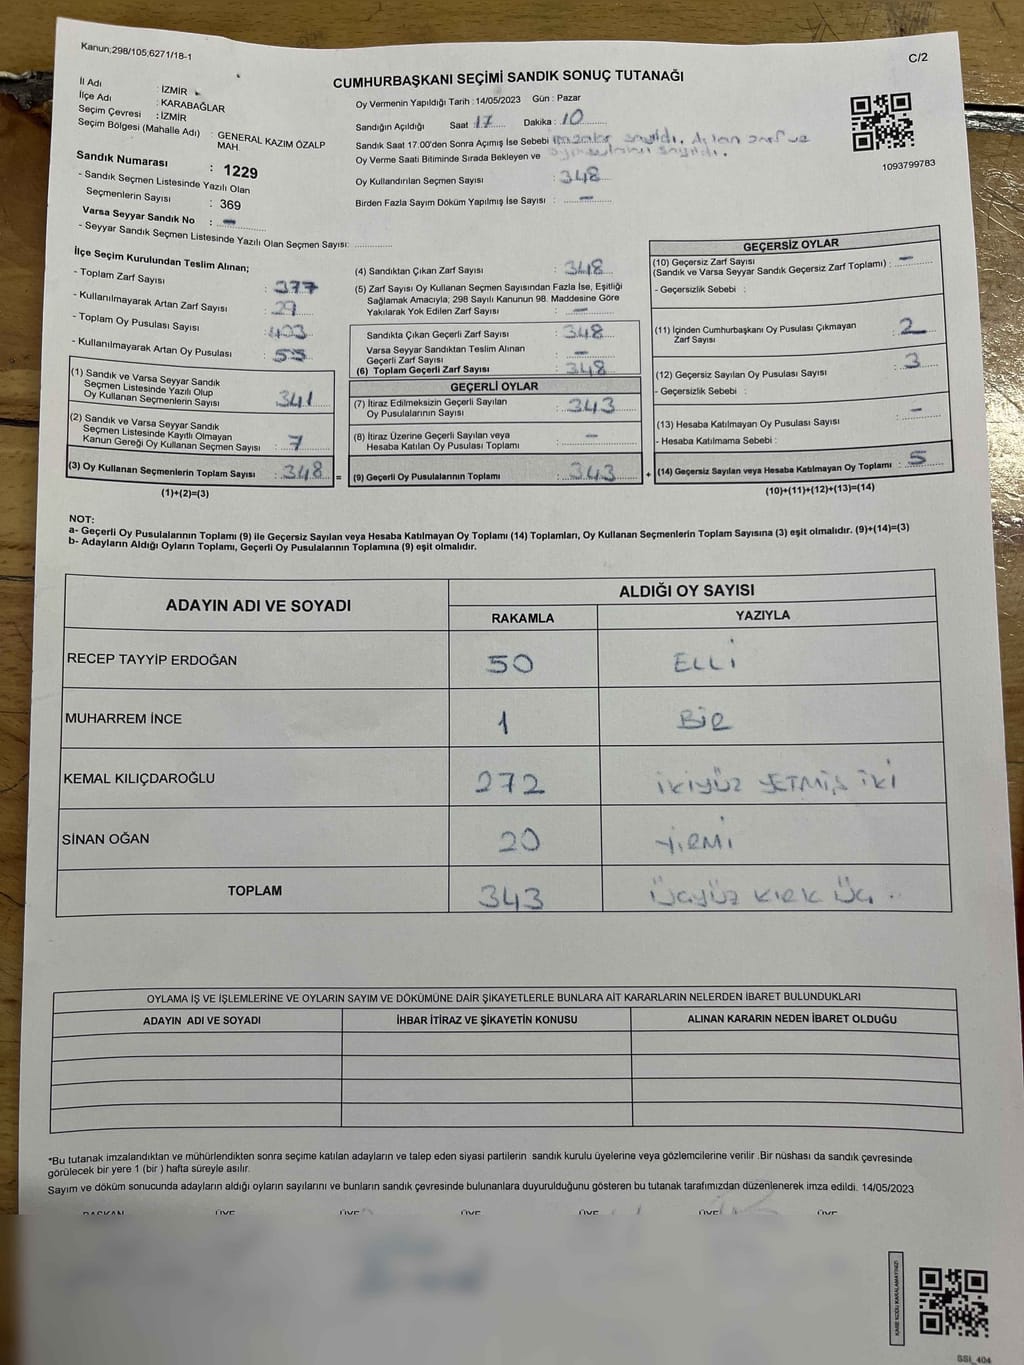 Kanun;298/105,6271/18-1
C/2
CUMHURBAŞKANI SEÇİMİ SANDIK SONUÇ TUTANAĞI
İl Adı : İZMİR
İlçe Adı : KARABAĞLAR
Seçim Çevresi : İZMİR
Seçim Bölgesi (Mahalle Adı) : GENERAL KAZIM ÖZALP
MAH.
Sandık Numarası : 1229
- Sandık Seçmen Listesinde Yazılı Olan
Seçmenlerin Sayısı : 369
Varsa Seyyar Sandık No : -
- Seyyar Sandık Seçmen Listesinde Yazılı Olan Seçmen Sayısı: ............
Oy Vermenin Yapıldığı Tarih : 14/05/2023 Gün : Pazar
Sandığın Açıldığı Saat 17 Dakika : 10
Sandık Saat 17.00'den Sonra Açımış İse Sebebi imzalar sayıldı. Açılan zarf ve
Oy Verme Saati Bitiminde Sırada Bekleyen ve sayıldı.
Oy Kullandırılan Seçmen Sayısı : 348
Birden Fazla Sayım Döküm Yapılmış İse Sayısı : -
1093799783
İlçe Seçim Kurulundan Teslim Alınan;
- Toplam Zarf Sayısı : 377
- Kullanılmayarak Artan Zarf Sayısı : 29
- Toplam Oy Pusulası Sayısı : 403
- Kullanılmayarak Artan Oy Pusulası : 55
(1) Sandık ve Varsa Seyyar Sandık
Seçmen Listesinde Yazılı Olup
Oy Kullanan Seçmenlerin Sayısı : 341
(2) Sandık ve Varsa Seyyar Sandık
Seçmen Listesinde Kayıtlı Olmayan
Kanun Gereği Oy Kullanan Seçmen Sayısı : 7
(3) Oy Kullanan Seçmenlerin Toplam Sayısı : 348 =
(1)+(2)=(3)
(4) Sandıktan Çıkan Zarf Sayısı : 348
(5) Zarf Sayısı Oy Kullanan Seçmen Sayısından Fazla İse, Eşitliği
Sağlamak Amacıyla; 298 Sayılı Kanunun 98. Maddesine Göre
Yakılarak Yok Edilen Zarf Sayısı : -
Sandıkta Çıkan Geçerli Zarf Sayısı : 348
Varsa Seyyar Sandıktan Teslim Alınan
Geçerli Zarf Sayısı : -
(6) Toplam Geçerli Zarf Sayısı : 348
GEÇERLİ OYLAR
(7) İtiraz Edilmeksizin Geçerli Sayılan
Oy Pusulalarının Sayısı : 343
(8) İtiraz Üzerine Geçerli Sayılan veya
Hesaba Katılan Oy Pusulası Toplamı : -
(9) Geçerli Oy Pusulalarının Toplamı : 343 +
GEÇERSİZ OYLAR
(10) Geçersiz Zarf Sayısı
(Sandık ve Varsa Seyyar Sandık Geçersiz Zarf Toplamı) : -
- Geçersizlik Sebebi :
(11) İçinden Cumhurbaşkanı Oy Pusulası Çıkmayan
Zarf Sayısı : 2
(12) Geçersiz Sayılan Oy Pusulası Sayısı : 3
- Geçersizlik Sebebi :
(13) Hesaba Katılmayan Oy Pusulası Sayısı : -
- Hesaba Katılmama Sebebi :
(14) Geçersiz Sayılan veya Hesaba Katılmayan Oy Toplamı : 5
(10)+(11)+(12)+(13)=(14)
NOT:
a- Geçerli Oy Pusulalarının Toplamı (9) ile Geçersiz Sayılan veya Hesaba Katılmayan Oy Toplamı (14) Toplamları, Oy Kullanan Seçmenlerin Toplam Sayısına (3) eşit olmalıdır. (9)+(14)=(3)
b- Adayların Aldığı Oyların Toplamı, Geçerli Oy Pusulalarının Toplamına (9) eşit olmalıdır.
ADAYIN ADI VE SOYADI
ALDIĞI OY SAYISI
RAKAMLA YAZIYLA
RECEP TAYYİP ERDOĞAN 50 ELLİ
MUHARREM İNCE 1 BİR
KEMAL KILIÇDAROĞLU 272 İKİYÜZ YETMİŞ İKİ
SİNAN OĞAN 20 YİRMİ
TOPLAM 343 ÜÇYÜZ KIRK ÜÇ .
OYLAMA İŞ VE İŞLEMLERİNE VE OYLARIN SAYIM VE DÖKÜMÜNE DAİR ŞİKAYETLERLE BUNLARA AİT KARARLARIN NELERDEN İBARET BULUNDUKLARI
ADAYIN ADI VE SOYADI İHBAR İTİRAZ VE ŞİKAYETİN KONUSU ALINAN KARARIN NEDEN İBARET OLDUĞU
*Bu tutanak imzalandıktan ve mühürlendikten sonra seçime katılan adayların ve talep eden siyasi partilerin sandık kurulu üyelerine veya gözlemcilerine verilir .Bir nüshası da sandık çevresinde
görülecek bir yere 1 (bir ) hafta süreyle asılır.
Sayım ve döküm sonucunda adayların aldığı oyların sayılarını ve bunların sandık çevresinde bulunanlara duyurulduğunu gösteren bu tutanak tarafımızdan düzenlenerek imza edildi. 14/05/2023
BAŞKAN ÜYE ÜYE ÜYE ÜYE ÜYE ÜYE
KARE KODU KARALAMAYINIZ!
SSI_404